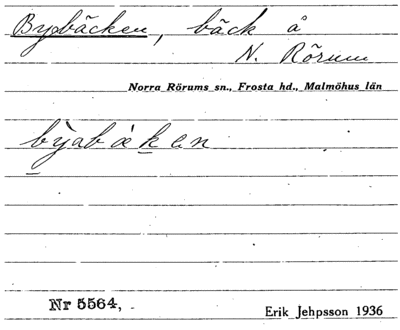 Bybäcken, bäck å
N. Rörum
Norra Rörums sn., Frosta hd., Malmöhus län
Nr 5564,
Erik Jehpsson 1936